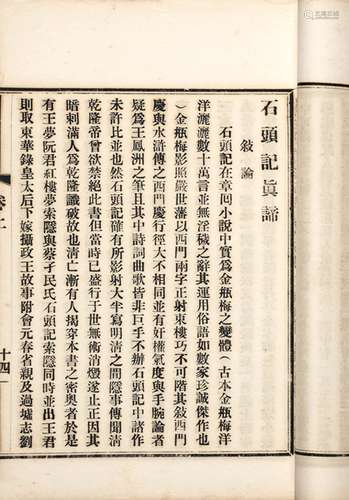 石頭記眞諦
敍論
石頭記在章囘小說中實爲金瓶梅之變體（古本金瓶梅洋
洋灑灑數十萬言並無淫穢之辭其運用俗語如數家珍誠傑作也
）金瓶梅影照嚴世藩以西門兩字正射東樓巧不可階其敍西門
慶與水滸傳之西門慶行徑大不相同並有奸權氣度與手腕論者
疑爲王鳳洲之筆且其中詩詞曲歌皆非巨手不辦石頭記中諸作
未許比並也然石頭記確有所影射大半寫明清之間隱事傳聞清
乾隆帝曾欲禁絕此書但當時已盛行于世無術消燬遂止正因其
暗刺滿人爲乾隆識破故也清亡漸有人揭穿本書之密奧者於是
有王夢阮君紅樓夢索隱與蔡孑民氏石頭記索隱同時並出王君
則取東華錄皇太后下嫁攝政王故事附會元春省親及過墟志劉
卷上
十四